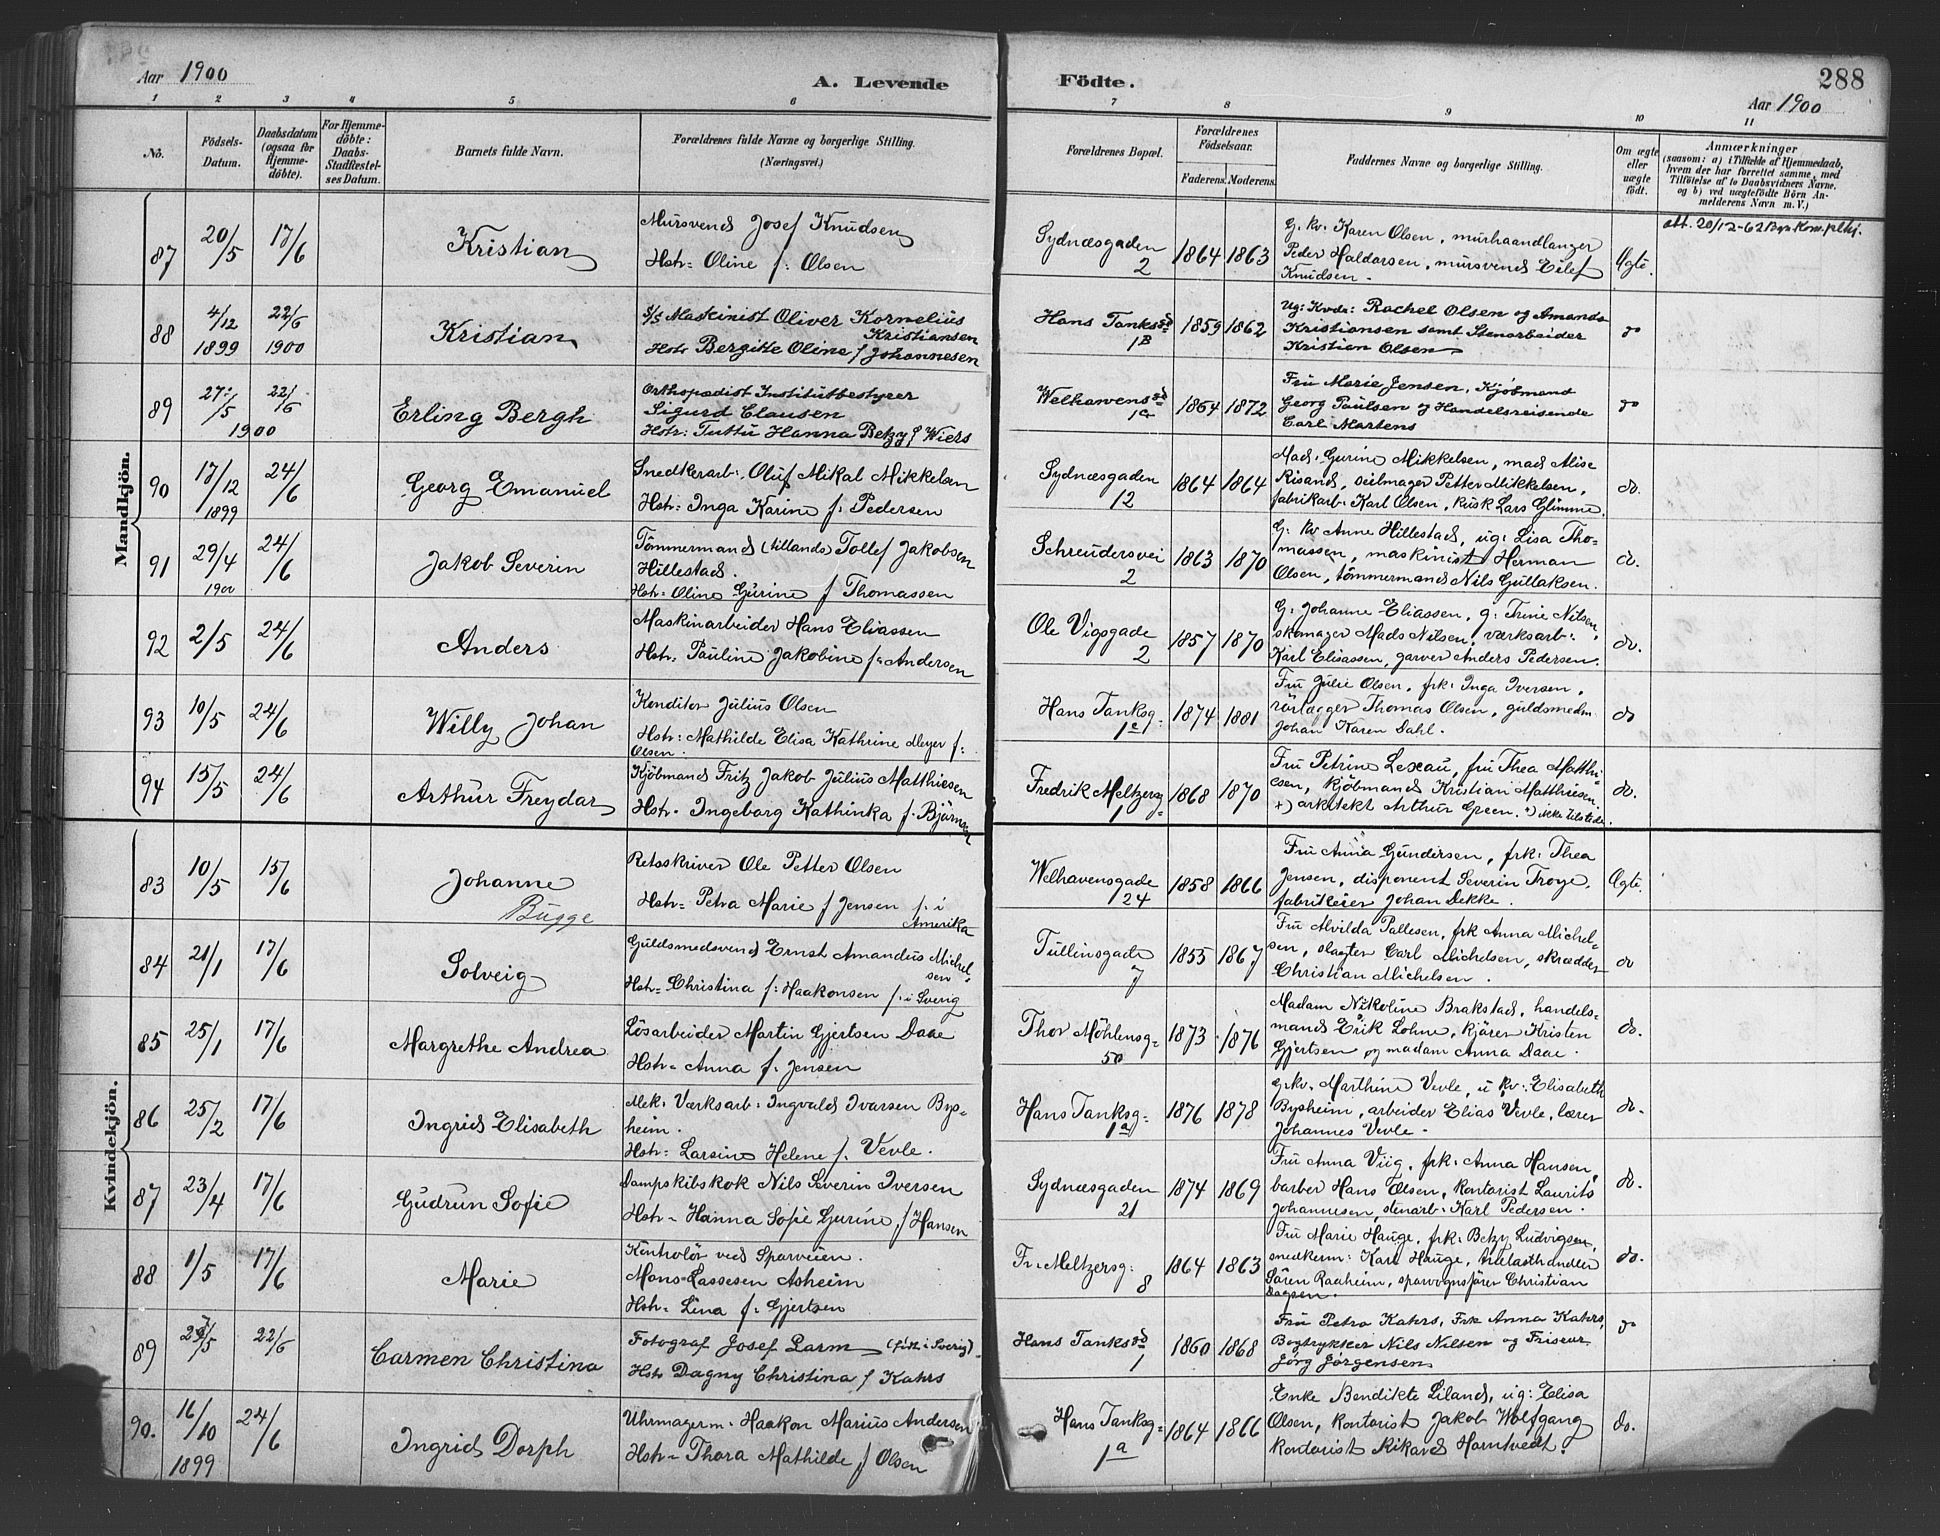 Aar 1900
A. Levende Födte.
288
Aar 1900
1 2 3 4 5 6 7 8 9 10 11
No.
Födsels-Datum.
Daabsdatum (ogsaa for Hjemme-döbte).
For Hjemme-döbte: Daabs-Stadfæstel-ses Datum.
Barnets fulde Navn.
Forældrenes fulde Navne og borgerlige Stilling. (Næringsvei.)
Forældrenes Bopæl.
Forældrenes Födselsaar.
Faderens. Moderens.
Faddernes Navne og borgerlige Stilling.
Om ægte eller uægte födt.
Anmærkninger
(saasom: a) i Tilfælde af Hjemmedaab, hvem der har forrettet samme, med Tilföielse af to Daabsvidners Navne. og b) ved uægtefödte Börn An-melderens Navn m. V.)
Mandkjön.
87 20/5 17/6 Kristian
Mursvend Josef Knudsen
Hstr: Oline f: Olsen
Sydnæsgaden 2 1864 1863
G. kv. Karen Olsen, murhaandlanger
Peder Haldorsen, mursvend Eilef
Knudsen.
Ægte.
att. 20/12-62
88 4/12 1899 22/6 1900 Kristian
S/S Maskinist Oliver Kornelius
Kristiansen
Hstr Bergitte Oline f Johannesen
Hans Tanksgd 1B 1859 1862
Ug: Kvdr: Rachel Olsen og Amanda
Kristiansen samt Stenarbeider
Kristian Olsen
do
89 27/5 1900 22/6 Erling Bergh
Orthopædist Institutbestyrer
Sigurd Clausen
Hstr: Tuttu Hanna Betzy f Wiers
Welhavensgd 1a 1864 1872
Fru Marie Jensen, Kjöbmand
Georg Paulsen og Handelsreisende
Carl Martens
do
90 17/12 1899 24/6 Georg Emanuel
Snedkerarb: Oluf Mikal Mikkelsen
Hstr: Inga Karine f: Pedersen
Sydnæsgaden 12 1864 1864
Mad: Gurine Mikkelsen, mad Alise
Risand, seilmager Petter Mikkelsen,
fabrikarb: Karl Olsen, kusk Lars Glimme.
do.
91 29/4 1900 24/6 Jakob Severin
Tömmermand (tillands) Tollef Jakobsen
Hillestad.
Hstr: Oline Gurine f Thomassen
Schreudersvei 2 1863 1870
G: kv Anne Hillestad, ug: Lisa Tho-
massen, maskinist Herman
Olsen, tömmermand Nils Gullaksen.
do.
92 2/5 24/6 Anders
Maskinarbeider Hans Eliassen
Hstr: Pauline Jakobine f: Andersen
Ole Vigsgade 2 1857 1870
G: Johanne Eliassen, g: Trine Nilsen,
skomager Mads Nilsen, værksarb:
Karl Elisassen, garver Anders Pedersen.
do.
93 10/5 24/6 Willy Johan
Konditor Julius Olsen
Hstr: Mathilde Elisa Kathrine Meyer f:
Olsen.
Hans Tanksg: 1a 1874 1881
Fru Julie Olsen, frk: Inga Iversen,
rörlægger Thomas Olsen, guldsmedm.
Johan Karen Dahl.
do
94 15/5 24/6 Arthur Freydar
Kjöbmand Fritz Jakob Julius Matthiesen
Hstr: Ingeborg Kathinka f. Björnsen
Fredrik Meltzersg: 1 1868 1870
Fru Petrine Lexau, fru Thea Matthi-
esen, kjöbmand Kristian Matthiesen.
+) arkitekt Arthur Green. +) ikke tilstede.
do.
Kvindekjön.
83 10/5 15/6 Johanne
Bugge
Retsskriver Ole Petter Olsen
Hstr: Petra Marie f Jensen f: i
Amerika
Welhavensgade 24 1858 1866
Fru Anna Gundersen, frk: Thea
Jensen, disponent Severin Troye,
fabrikeier Johan Dekke.
Ægte.
84 21/1 17/6 Solveig
Guldsmedsvend Ernst Amandus Michel-
sen
Hstr: Christina f: Haakonsen f: i Sverig
Tullinsgade 7 1855 1867
Fru Alvilda Pallesen, frk Anna Michel-
sen, slagter Carl Michelsen, skrædder
Christian Michelsen.
do
85 25/1 17/6 Margrethe Andrea
Lösarbeider Martin Gjertsen Daae
Hstr: Anna f. Jensen
Thor Möhlensg: 50 1873 1876
Madam Nikoline Brakstad, handels-
mand Erik Lohne, kjörer Kristen
Gjertsen og madam Anna Daae.
do.
86 25/2 17/6 Ingrid Elisabeth
Mek: Værksarb: Ingvald Ivarsen Bys-
heim.
Hstr: Larsine Helene f. Vevle.
Hans Tanksg: 1a 1876 1878
g. kv. Marthine Vevle, u kv: Elisabeth
Bysheim, arbeider Elias Vevle, lærer
Johannes Vevle.
do.
87 23/4 17/6 Gudrun Sofie
Dampskibskok Nils Severin Iversen
Hstr: Hanna Sofie Gurine f Hansen
Sydnæsgaden 21 1874 1869
Fru Anna Viig, frk: Anna Hansen,
barber Hans Olsen, kontorist Laurits
Johannesen, stenarb: Karl Pedersen.
do.
88 1/5 17/6 Marie
Kontrolör ved Sporveien.
Mons Lassesen Asheim
Hstr: Lina f: Gjertsen
Fr: Meltzersg: 8 1864 1863
Fru Marie Hauge, frk: Betzy Ludvigsen,
snedkerm: Karl Hauge, trælasthandler
Sören Raaheim, sporvognsförer Christian
Dagsen.
do.
89 27/5 22/6 Carmen Christina
Fotograf Josef Larm (födt i Sverig)
Hstr Dagny Christina f Kahrs
Hans Tanksgd 1 1860 1868
Fru Petra Kahrs, Frk Anna Kahrs,
Bogtrykker Nils Nilsen og Friseur
Jörg Jörgensen
do
90. 16/10 1899 24/6 Ingrid Dorph
Uhrmagerm: Haakon Marius Andersen
Hstr: Thora Mathilde f Olsen
Hans Tanksg: 1a 1864 1866
Enke Bendikte Liland, ug: Elisa
Olsen, kontorist Jakob Wolfgang
kontorist Rikard Horntvedt.
do.